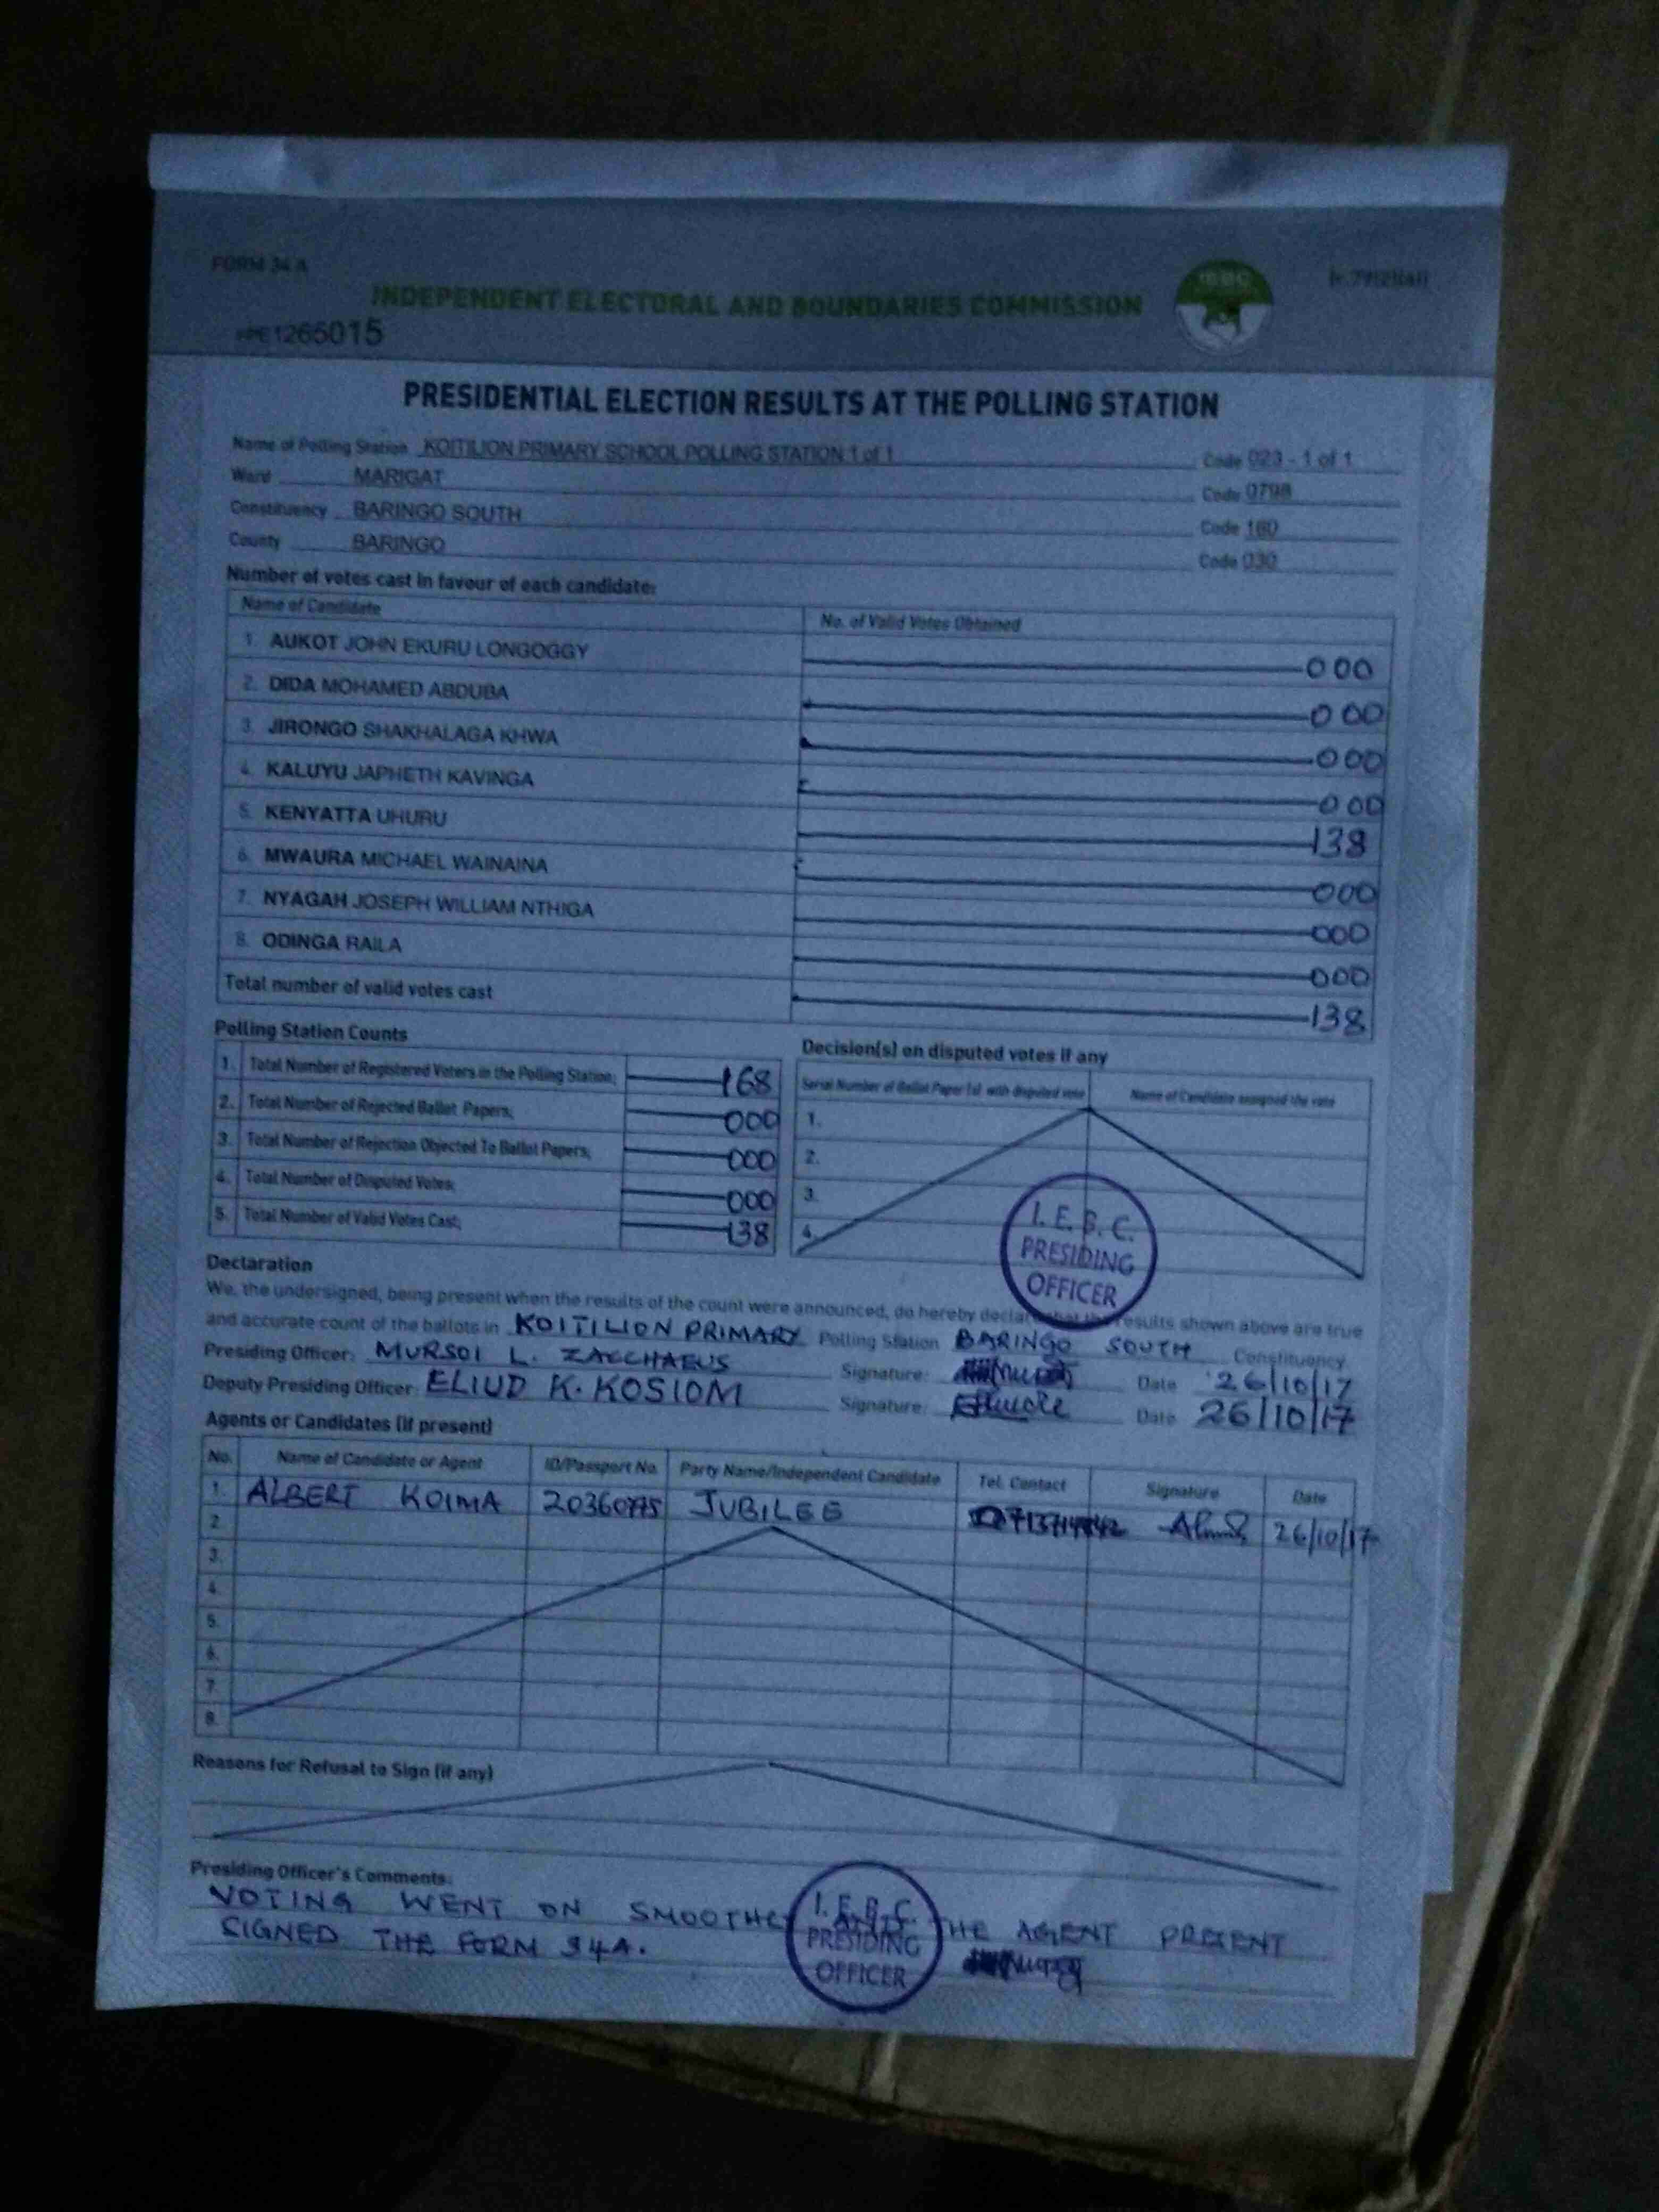 FORM 34 A
INDEPENDENT ELECTORAL AND BOUNDARIES COMMISSION
1265015
PRESIDENTIAL ELECTION RESULTS AT THE POLLING STATION
Name of Polling Station KOITILION PRIMARY SCHOOL POLLING STATION 1 of 1 Code 023 - 1 of 1
Ward MARIGAT Code 0798
Constituency BARINGO SOUTH Code 160
County BARINGO Code 030
Number of votes cast in favour of each candidate:
Name of Candidate No. of Valid Votes Obtained
1. AUKOT JOHN EKURU LONGOGGY 000
2. DIDA MOHAMED ABDUBA 000
3. JIRONGO SHAKHALAGA KHWA 000
4. KALUYU JAPHETH KAVINGA 000
5. KENYATTA UHURU 138
6. MWAURA MICHAEL WAINAINA 000
7. NYAGAH JOSEPH WILLIAM NTHIGA 000
8. ODINGA RAILA 000
Total number of valid votes cast 138
Polling Station Counts
1. Total Number of Registered Voters in the Polling Station; 168
2. Total Number of Rejected Ballot Papers; 000
3. Total Number of Rejection Objected To Ballot Papers; 000
4. Total Number of Disputed Votes; 000
5. Total Number of Valid Votes Cast; 138
Decision(s) on disputed votes if any
Serial Number of Ballot Paper (s) with disputed vote Name of Candidate assigned the vote
1.
2.
3.
4.
I. E. B. C.
PRESIDING
OFFICER
Declaration
We, the undersigned, being present when the results of the count were announced, do hereby declare that the results shown above are true
and accurate count of the ballots in KOITILION PRIMARY Polling Station BARINGO SOUTH Constituency.
Presiding Officer: MURSOI L. ZACCHAEUS Signature: Date 26/10/17
Deputy Presiding Officer: ELIUD K. KOSIOM Signature: Date 26/10/17
Agents or Candidates (if present)
No. Name of Candidate or Agent ID/Passport No. Party Name/Independent Candidate Tel. Contact Signature Date
1. ALBERT KOIMA JUBILEE 26/10/17
2
3.
4.
5.
6.
7.
8.
Reasons for Refusal to Sign (if any)
Presiding Officer's Comments:
VOTING WENT ON THE AGENT PRESENT
SIGNED THE FORM 34A.
I. E. B. C.
PRESIDING
OFFICER